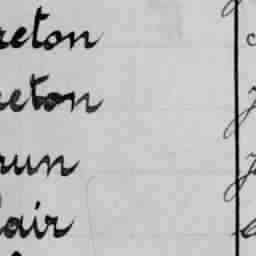 reton
reton
run
lair